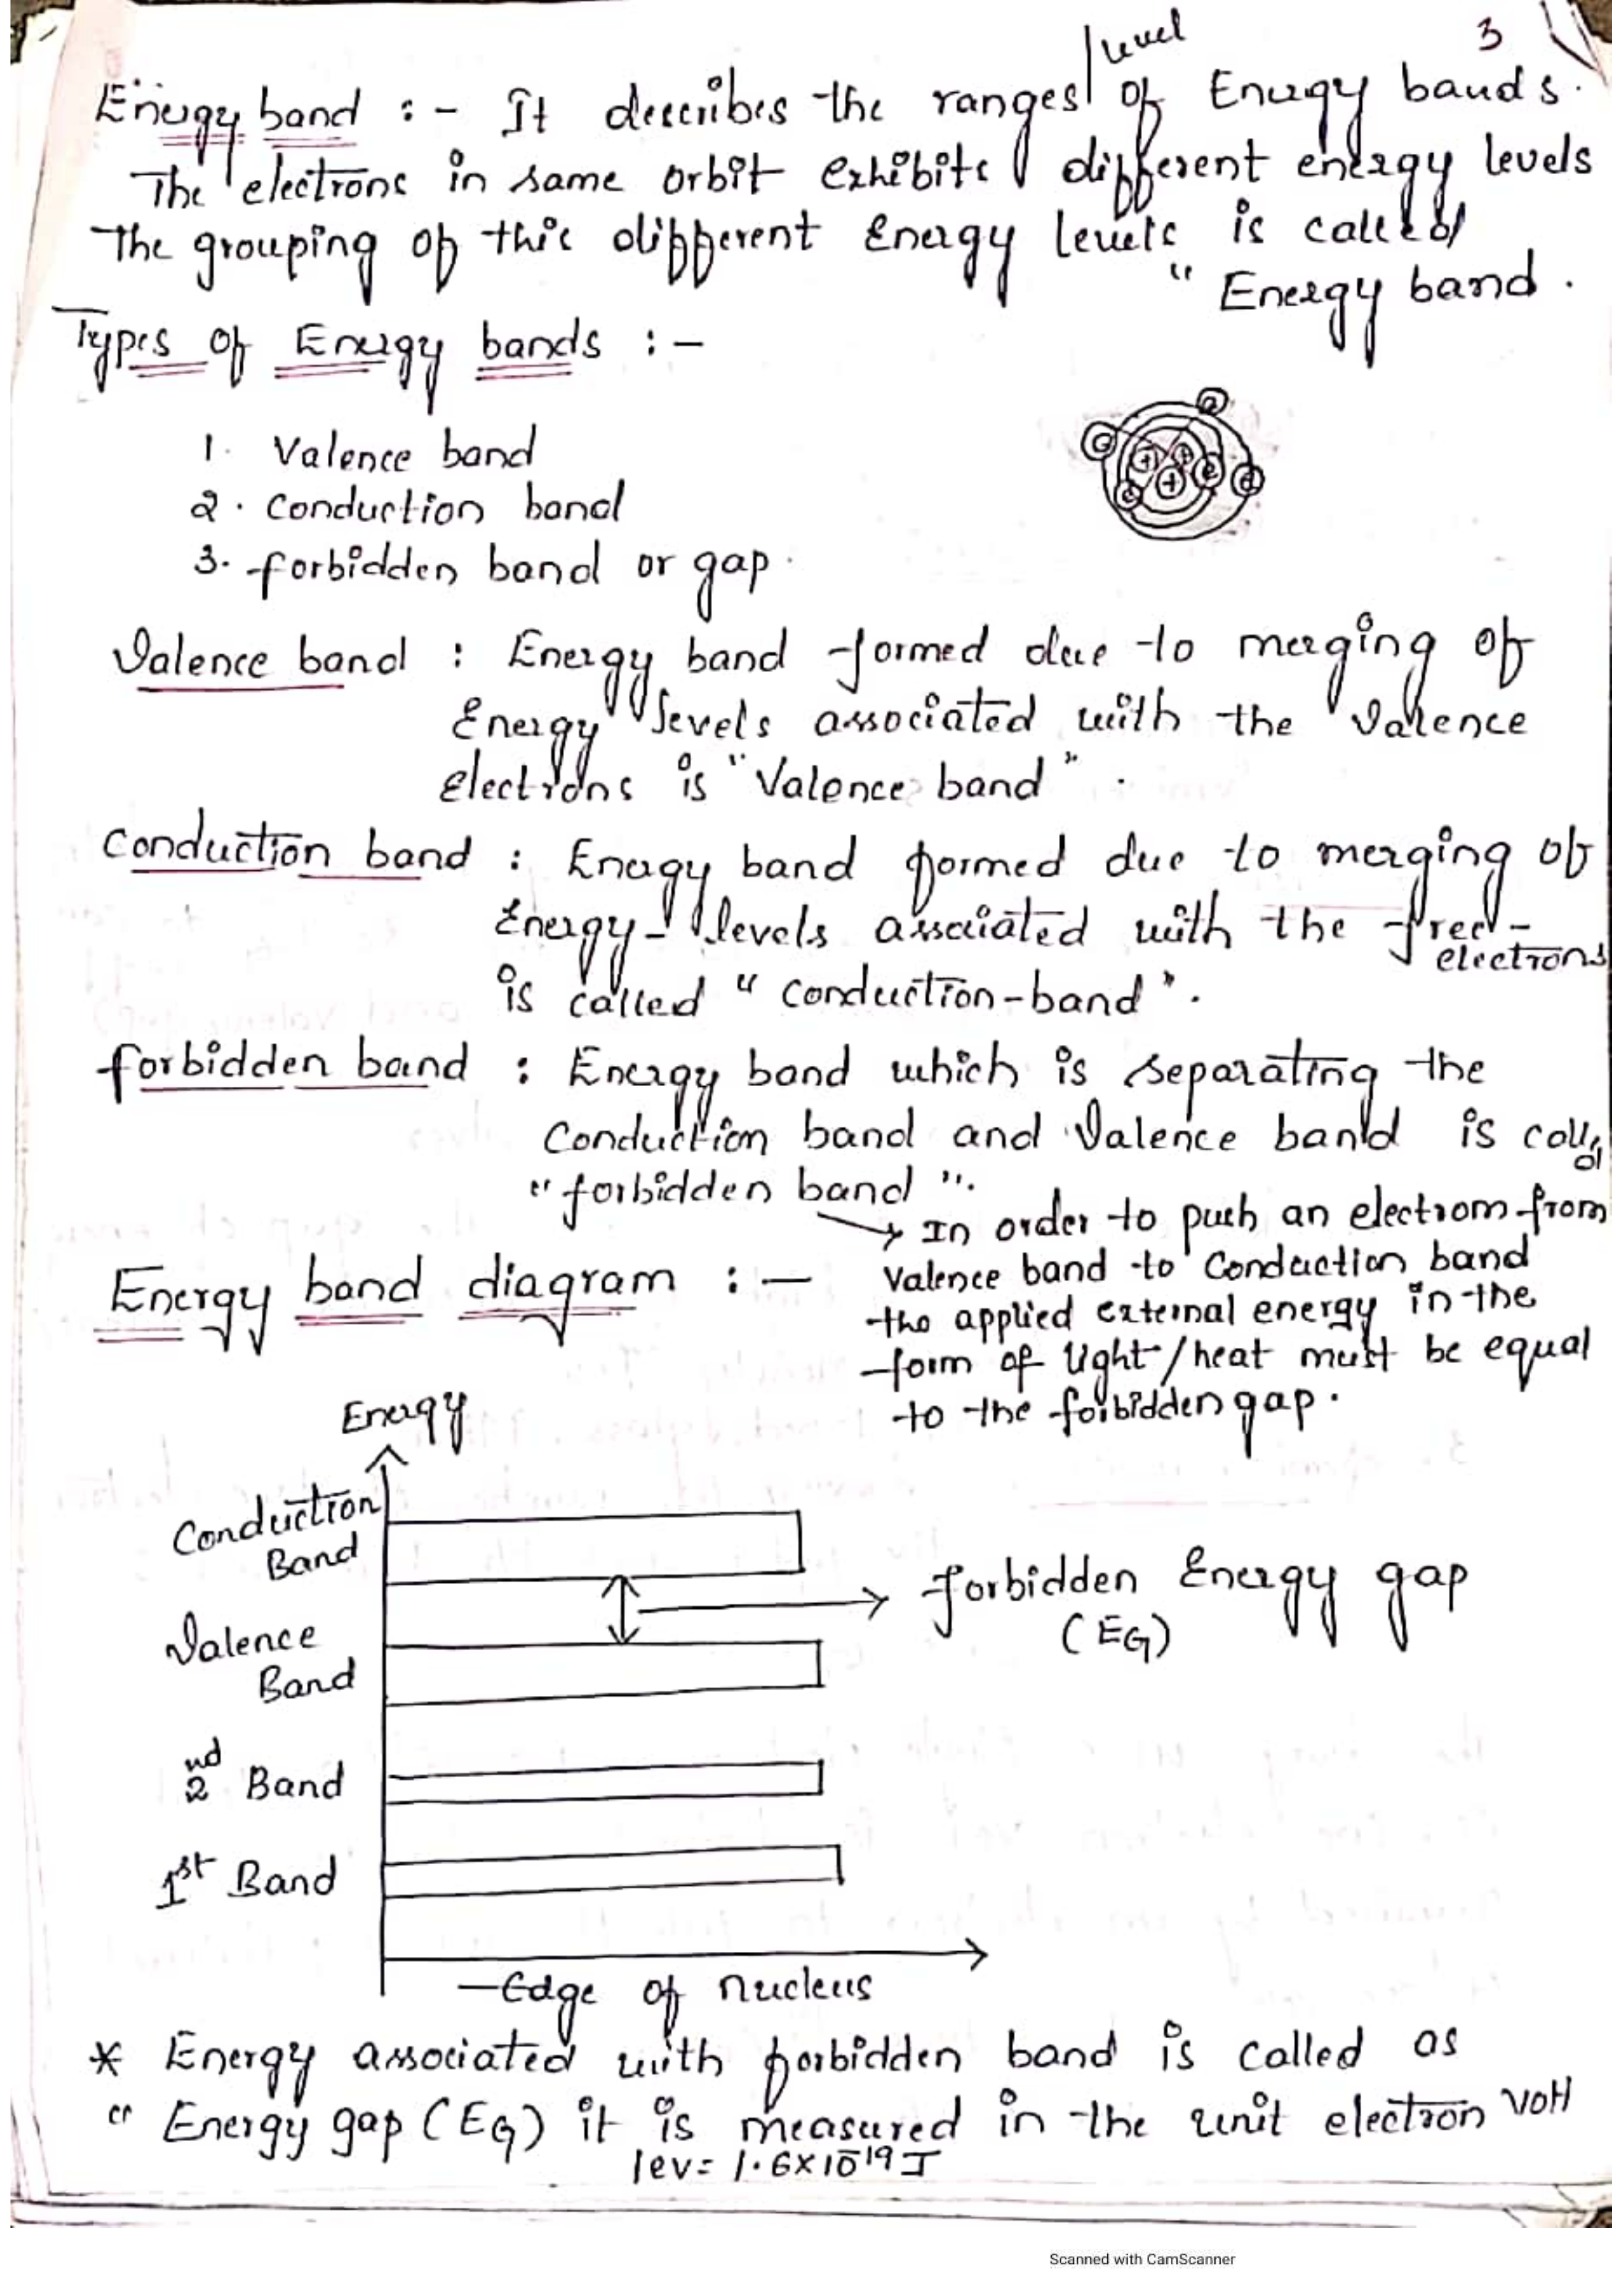 level
3
Energy band :- It describes the ranges/ of Energy bands.
The electrons in same orbit exhibits different energy levels
The grouping of this different Energy levels is called
" Energy band .
Types of Energy bands :-
1. Valence band
2. Conduction band
3. forbidden band or gap.
Valence band : Energy band formed due to merging of
Energy levels associated with the Valence
Electrons is "Valence band" .
Conduction band : Energy band formed due to merging of
Energy- levels associated with the free-
electrons
is called " Conduction-band ".
forbidden band : Energy band which is separating the
Conduction band and Valence band is called
" forbidden band ".
→ In order to push an electrom from
Energy band diagram :-
Valence band to Conduction band
the applied external energy in the
form of light/heat must be equal
to the forbidden gap.
Energy
Conduction
Band
forbidden Energy gap
(EG)
Valence
Band
2nd Band
1st Band
Edge of nucleus
* Energy associated with forbidden band is called as
" Energy gap (EG) it is measured in the unit electron volt
1ev = 1.6×10-19 J
Scanned with CamScanner